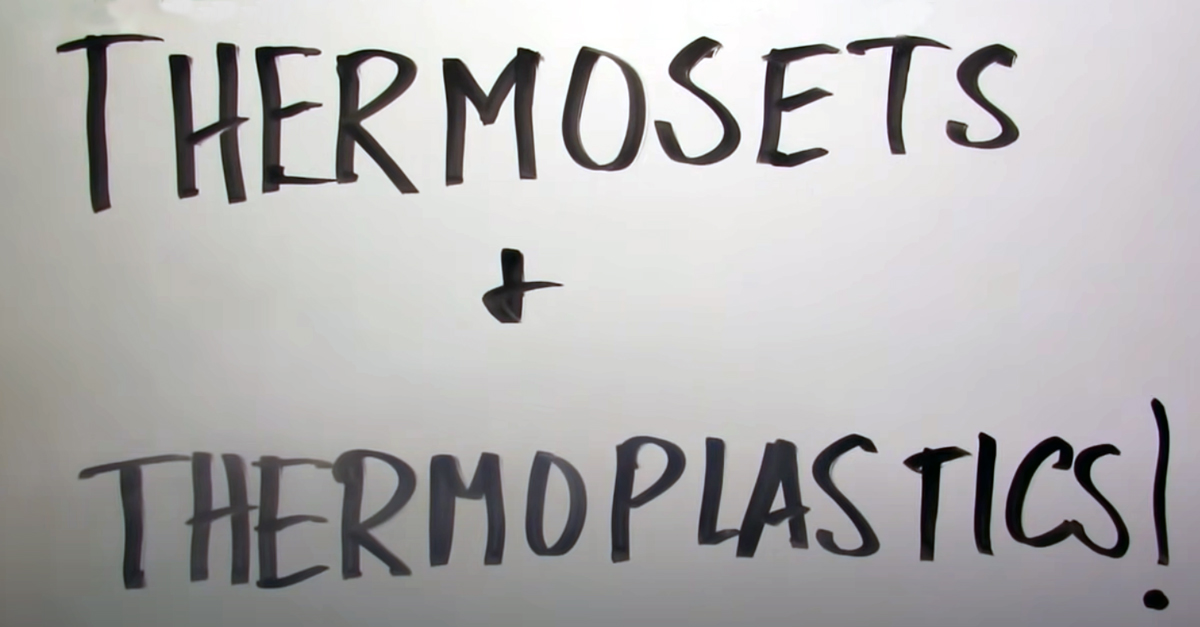 THERMOSETS
+
THERMOPLASTICS!